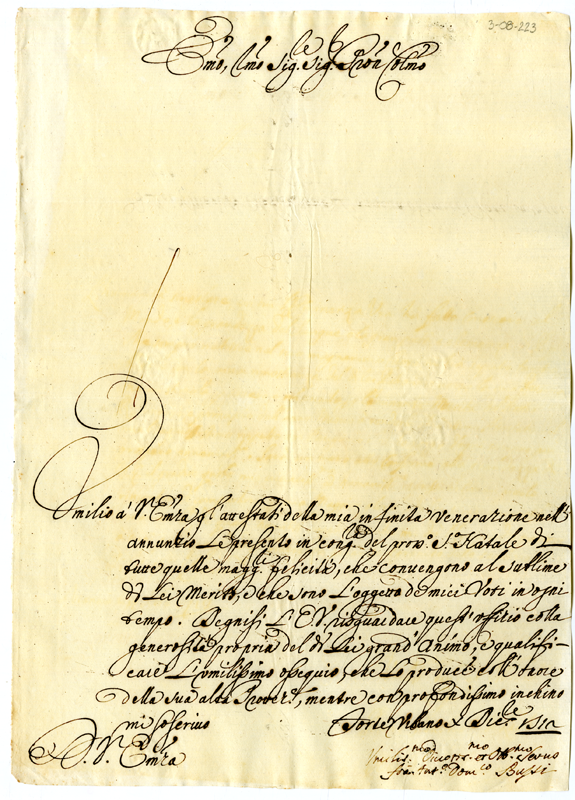 3-08-223
Emo, Rmo Sig.re Sig.r Pron Colmo
Umilio à V.ra Emza gl'attestati della mia infinita venerazione nell'
annunzio Le presento in cong.ra del pros.o S. Natale di
tutte quelle magg.ri felicità, che convengono al sublime
di Lei Merito, e che sono l'oggetto de miei Voti in ogni
tempo. Degnisi L'E.V. risguardare quest'offitio colla
generosità propria del di Lei grand'Animo, e qualifi-
care L'umilissimo ossequio, che Lo produce coll'onore
della sua alta, mentre con profondissimo inchino
mi
Forte Urbano X.bre
D. V.ra Emza
Umiliss.mo Devotiss.mo et Obb.mo Servo
Fran. Ant.o Dom.co Bussi